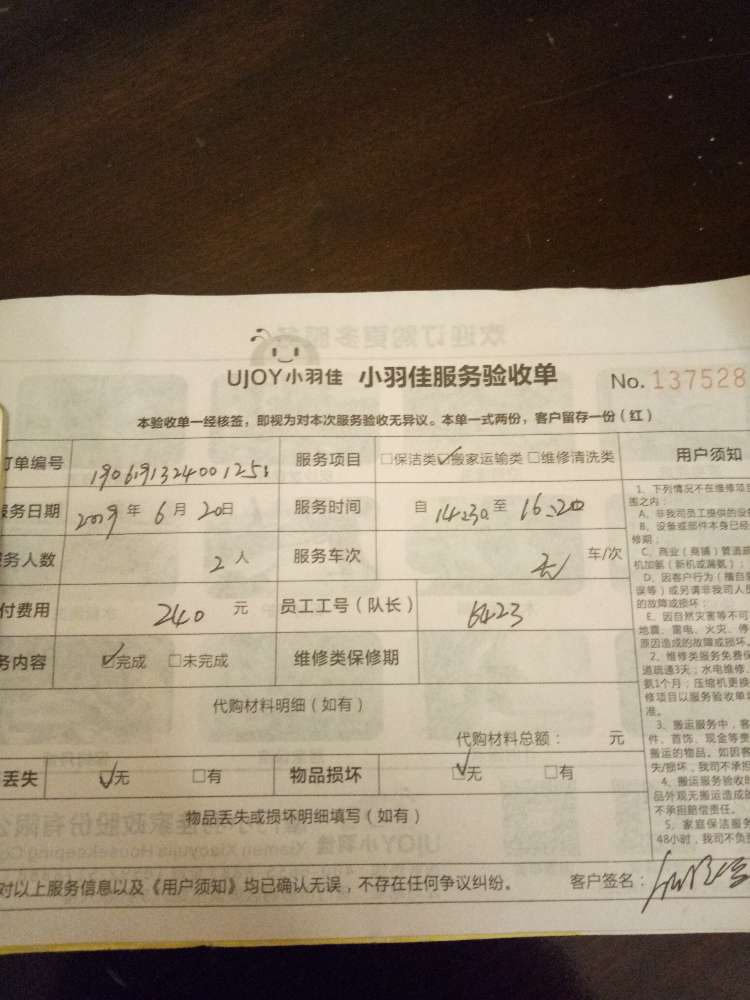 UJOY小羽佳 小羽佳服务验收单 No. 137528
本验收单一经核签，即视为对本次服务验收无异议。本单一式两份，客户留存一份（红）
订单编号 服务项目 □保洁类 ☑搬家运输类 □维修清洗类 用户须知
服务日期 2019 年 6 月 20 日 服务时间 自 至 16:20
服务人数 2 人 服务车次 无 车/次
付费用 240 元 员工工号（队长） 6423
务内容 ☑完成 □未完成 维修类保修期
代购材料明细（如有）
代购材料总额： 元
丢失 ☑无 □有 物品损坏 ☑无 □有
物品丢失或损坏明细填写（如有）
对以上服务信息以及《用户须知》均已确认无误，不存在任何争议纠纷。 客户签名：
1、下列情况不在维修项目
围之内：
A、非我司员工提供的设备
B、设备或部件本身已经
修期；
C、商业（商铺）管道疏
机加氨（新机或漏氨）；
D、因客户行为（擅自
误等）或另请非我司人员
的故障或损坏；
E、因自然灾害等不可
地震、雷电、火灾、停
原因造成的故障或损坏。
2、维修类服务免费保
道疏通3天；水电维修、
氨1个月；压缩机更换
修项目以服务验收单
准。
3、搬运服务中，客
件、首饰、现金等贵
搬运的物品。如因客
失/损坏，我司不承担
4、搬运服务验收时
品外观无搬运造成
不承担赔偿责任。
5、家庭保洁服务
48小时，我司不负责